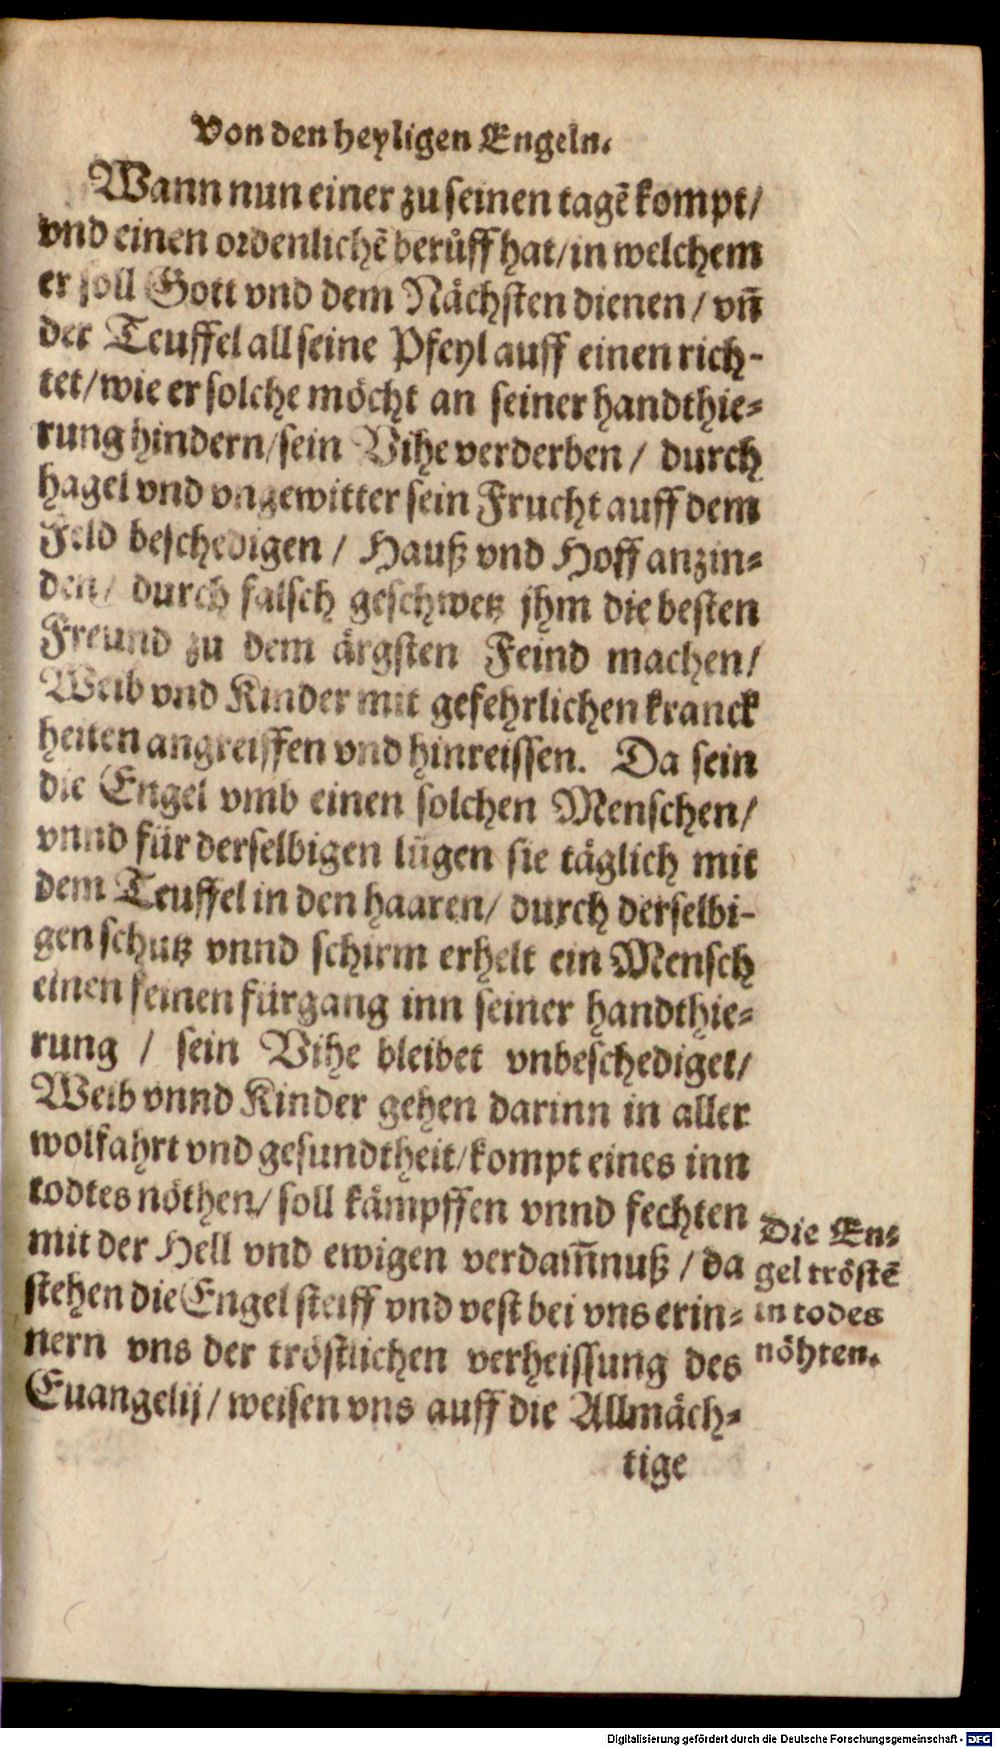 Von den heyligen Engeln.
Wann nun einer zu seinen tagē kompt/
vnd einen ordenlichē berůff hat/in welchem
er soll Gott vnd dem Nächsten dienen / vn̄
der Teuffel all seine Pfeyl auff einen rich-
tet/wie er solche möcht an seiner handthie-
rung hindern/sein Vihe verderben / durch
hagel vnd vngewitter sein Frucht auff dem
Feld beschedigen / Hauß vnd Hoff anzin-
den/ durch falsch geschwetz jhm die besten
Freund zu dem ärgsten Feind machen/
Weib vnd Kinder mit gefehrlichen kranck
heiten angreiffen vnd hinreissen. Da sein
die Engel vmb einen solchen Menschen/
vnnd für derselbigen lügen sie täglich mit
dem Teuffel in den haaren/ durch derselbi-
gen schutz vnnd schirm erhelt ein Mensch
einen feinen fürgang inn seiner handthie-
rung / sein Vihe bleibet vnbeschediget/
Weib vnnd Kinder gehen darinn in aller
wolfahrt vnd gesundtheit/kompt eines inn
todtes nöthen/ soll kämpffen vnnd fechten
mit der Hell vnd ewigen verdam̄nuß / da
stehen die Engel steiff vnd vest bei vns erin-
nern vns der tröstlichen verheissung des
Euangelij/ weisen vns auff die Allmäch-
tige
Die En-
gel tröstē
in todes
nöhten.
Digitalisierung gefördert durch die Deutsche Forschungsgemeinschaft - DFG